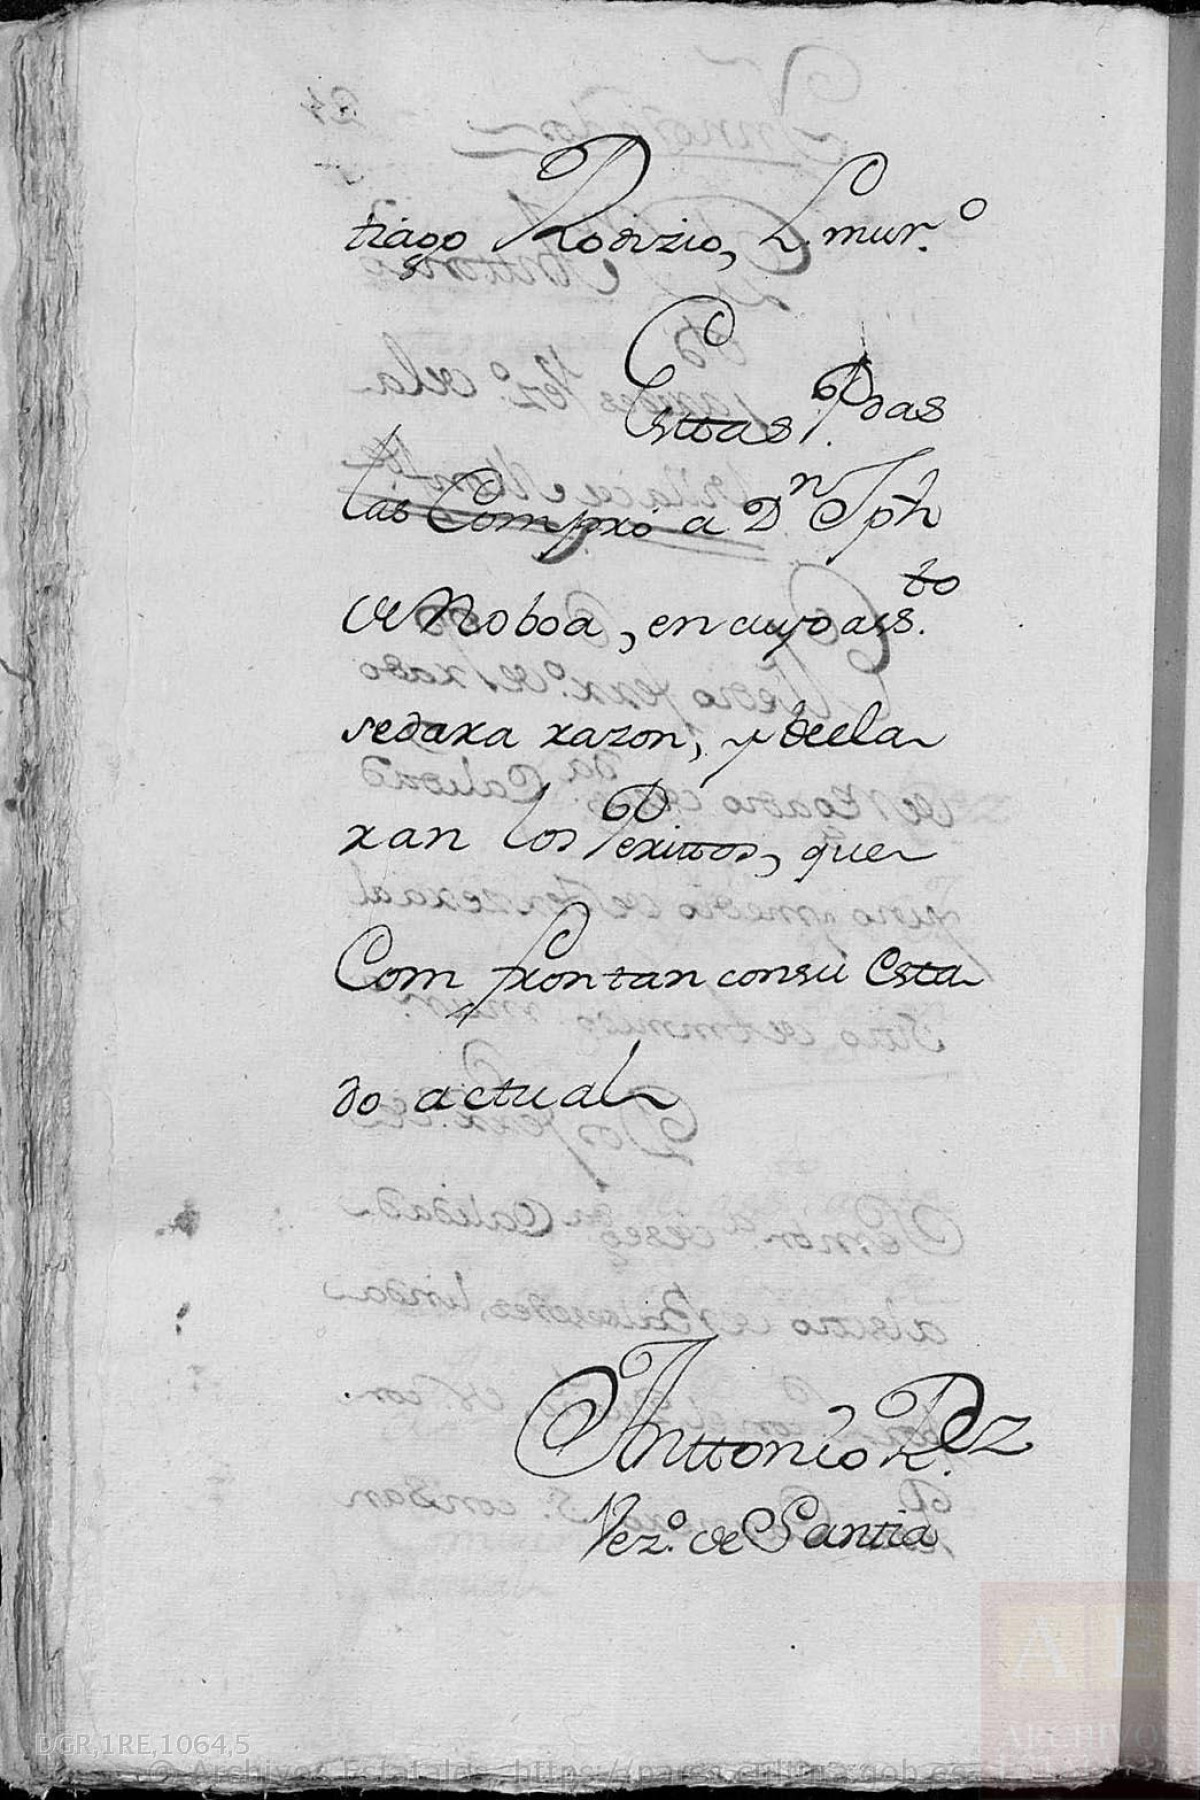 tiago Rodizio, L. mur.º
Esttas P.das
las Compró a D.n Jph
de Noboa, en cuyo ass.to
sedara razon, y decla
ran los Perittos, que
Com frontan consu Esta
do actual
Anttonio Rz
Vez.º de Santia
DGR,1RE,1064,5
© Archivos Estatales, https://pares.cultura.gob.es
AE
ARCHIVOS